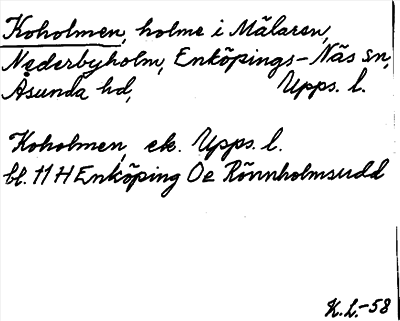 Koholmen, holme i Mälaren,
Nederbyholm, Enköpings-Näs sn,
Åsunda hd, Upps. l.
Koholmen, ek. Upps. l.
bl. 11 H Enköping Oe Rönnholmsudd
K.L.-58